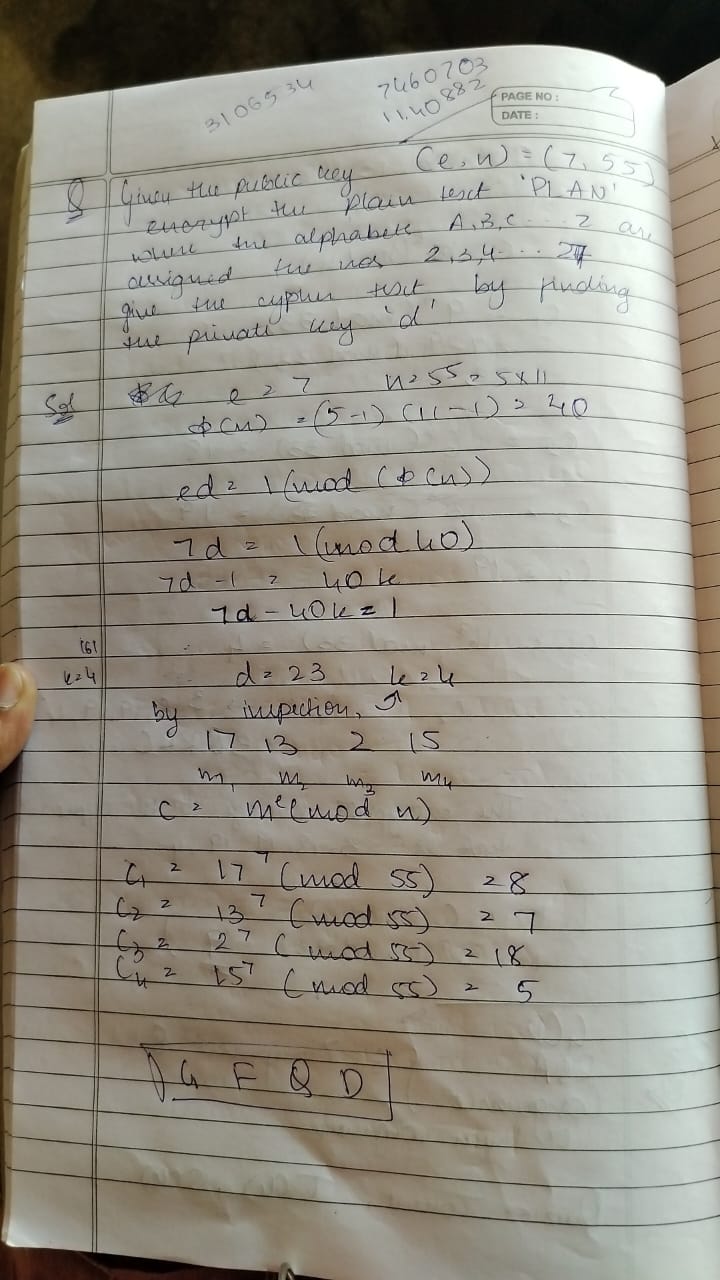 3106534
7460703
11,40882
PAGE NO :
DATE :
Q Given the public key (e, n) = (7, 55)
encrypt the plain text 'PLAN'
where the alphabets A, B, C ... Z are
assigned the nos 2, 3, 4 ... 27
give the cypher text by finding
the private key 'd'
Sol e = 7 n = 55 = 5 x 11
ϕ(n) = (5-1) (11-1) = 40
ed = 1 (mod (ϕ(n))
7d = 1 (mod 40)
7d - 1 = 40k
7d - 40k = 1
161
k=4 d = 23 k = 4
by inspection, ↗
17 13 2 15
m1 m2 m3 m4
C = m^e (mod n)
C1 = 17^7 (mod 55) = 8
C2 = 13^7 (mod 55) = 7
C3 = 2^7 (mod 55) = 18
C4 = 15^7 (mod 55) = 5
G F Q D